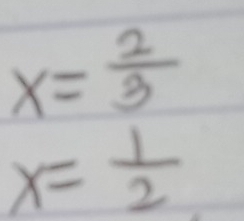 x = 2/3
x = 1/2